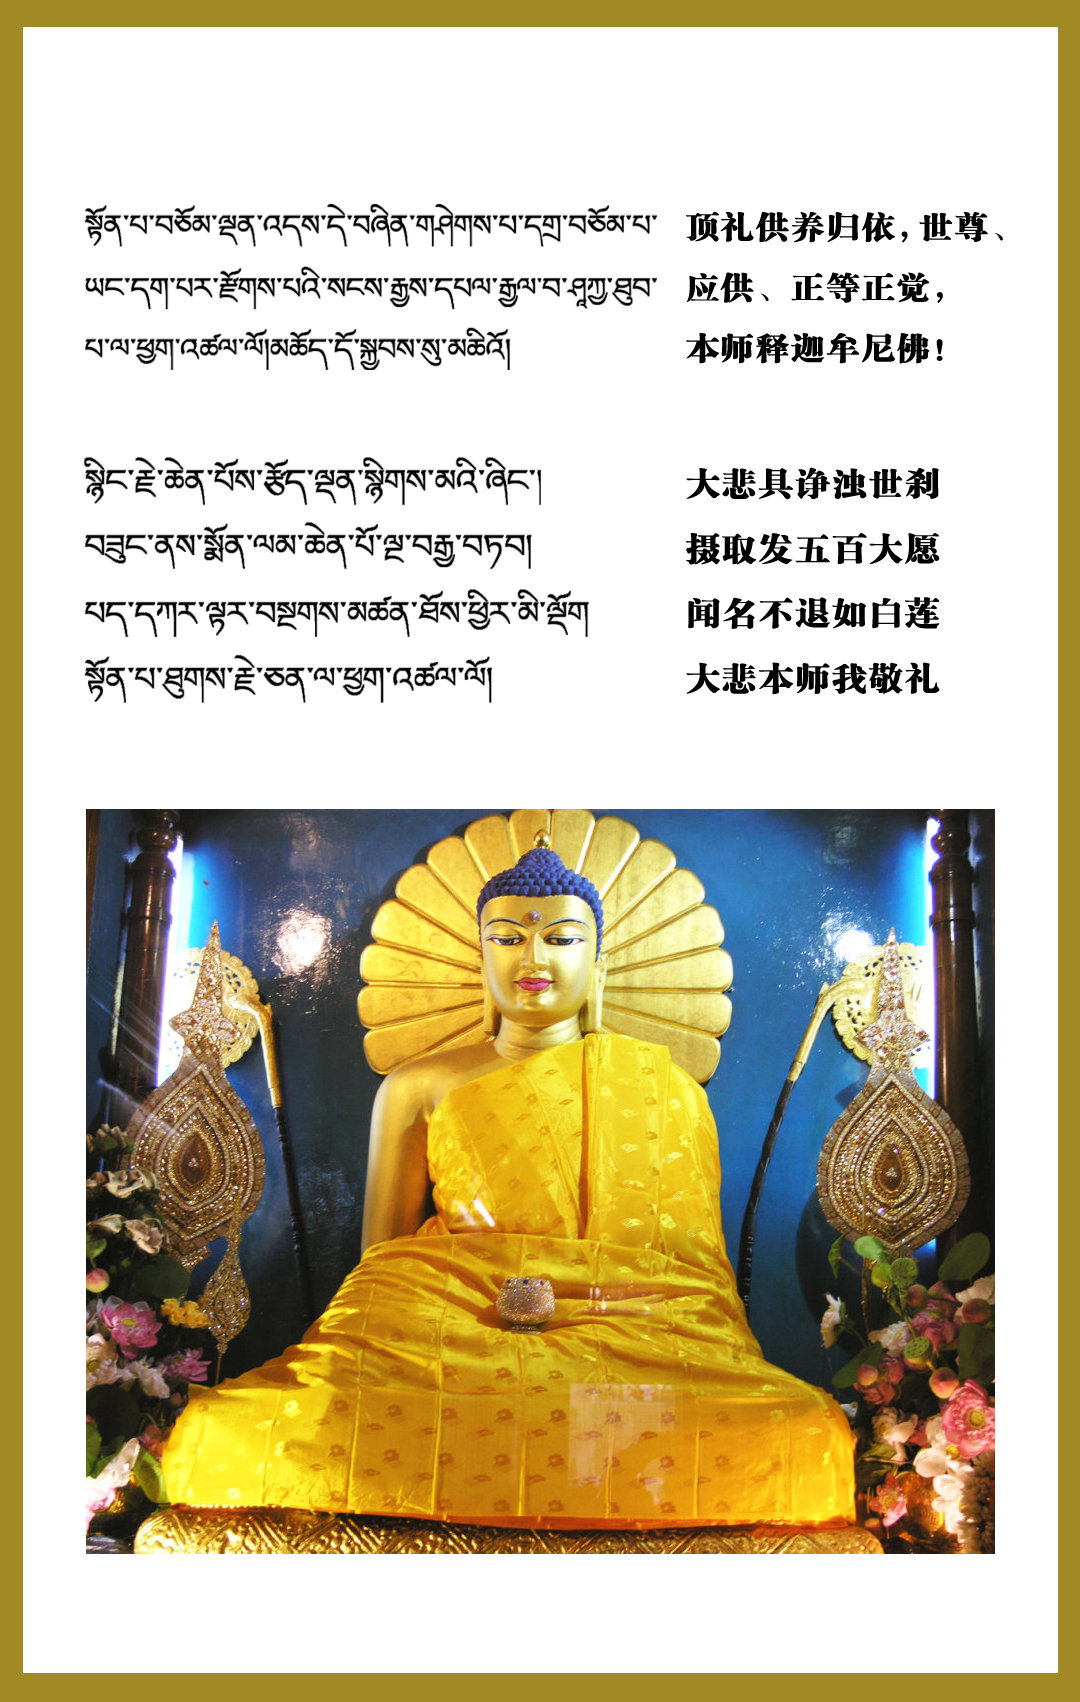 སྟོན་པ་བཅོམ་ལྡན་འདས་དེ་བཞིན་གཤེགས་པ་དགྲ་བཅོམ་པ་
ཡང་དག་པར་རྫོགས་པའི་སངས་རྒྱས་དཔལ་རྒྱལ་བ་ཤཱཀྱ་ཐུབ་
པ་ལ་ཕྱག་འཚལ་ལོ།མཆོད་དོ་སྐྱབས་སུ་མཆིའོ།
顶礼供养归依，世尊、
应供、正等正觉，
本师释迦牟尼佛！
སྙིང་རྗེ་ཆེན་པོས་རྩོད་ལྡན་སྙིགས་མའི་ཞིང་།
བཟུང་ནས་སྨོན་ལམ་ཆེན་པོ་ལྔ་བརྒྱ་བཏབ།
པད་དཀར་ལྟར་བསྔགས་མཚན་ཐོས་ཕྱིར་མི་ལྡོག
སྟོན་པ་ཐུགས་རྗེ་ཅན་ལ་ཕྱག་འཚལ་ལོ།
大悲具诤浊世刹
摄取发五百大愿
闻名不退如白莲
大悲本师我敬礼